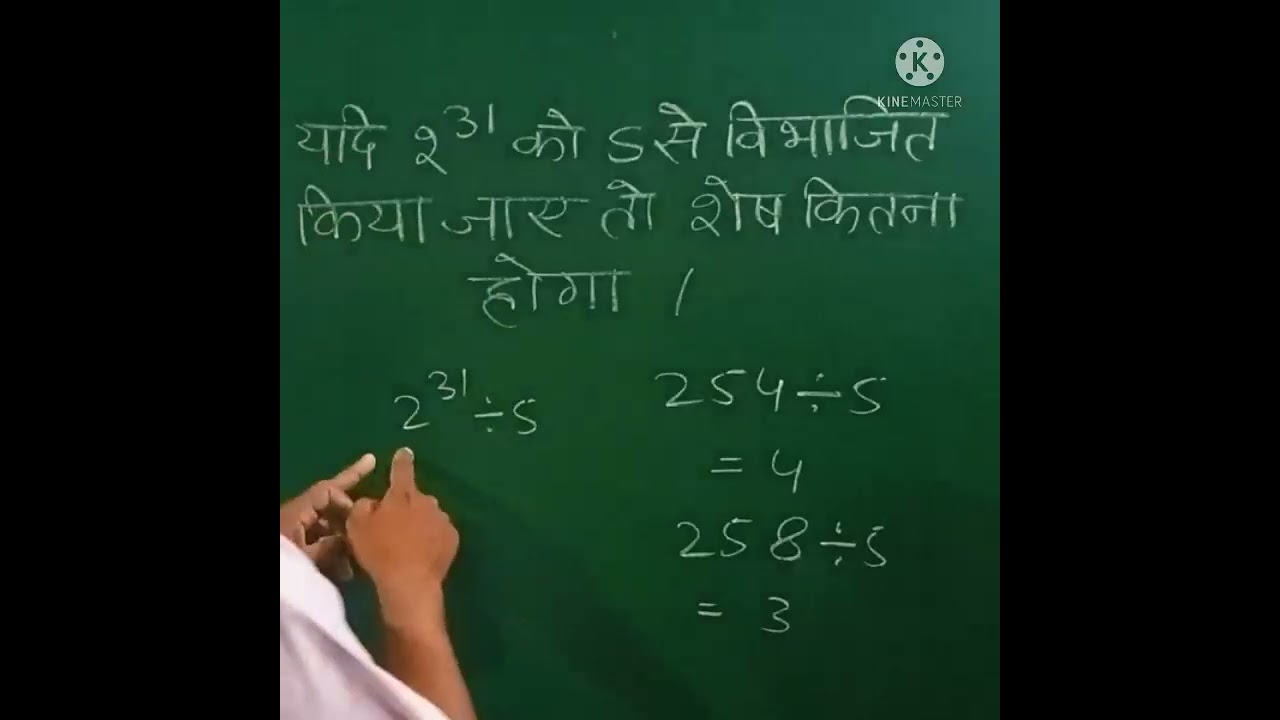 KINEMASTER
यदि 2³¹ को 5 से विभाजित
किया जाए तो शेष कितना
होगा ।
2³¹ ÷ 5
254 ÷ 5
= 4
258 ÷ 5
= 3